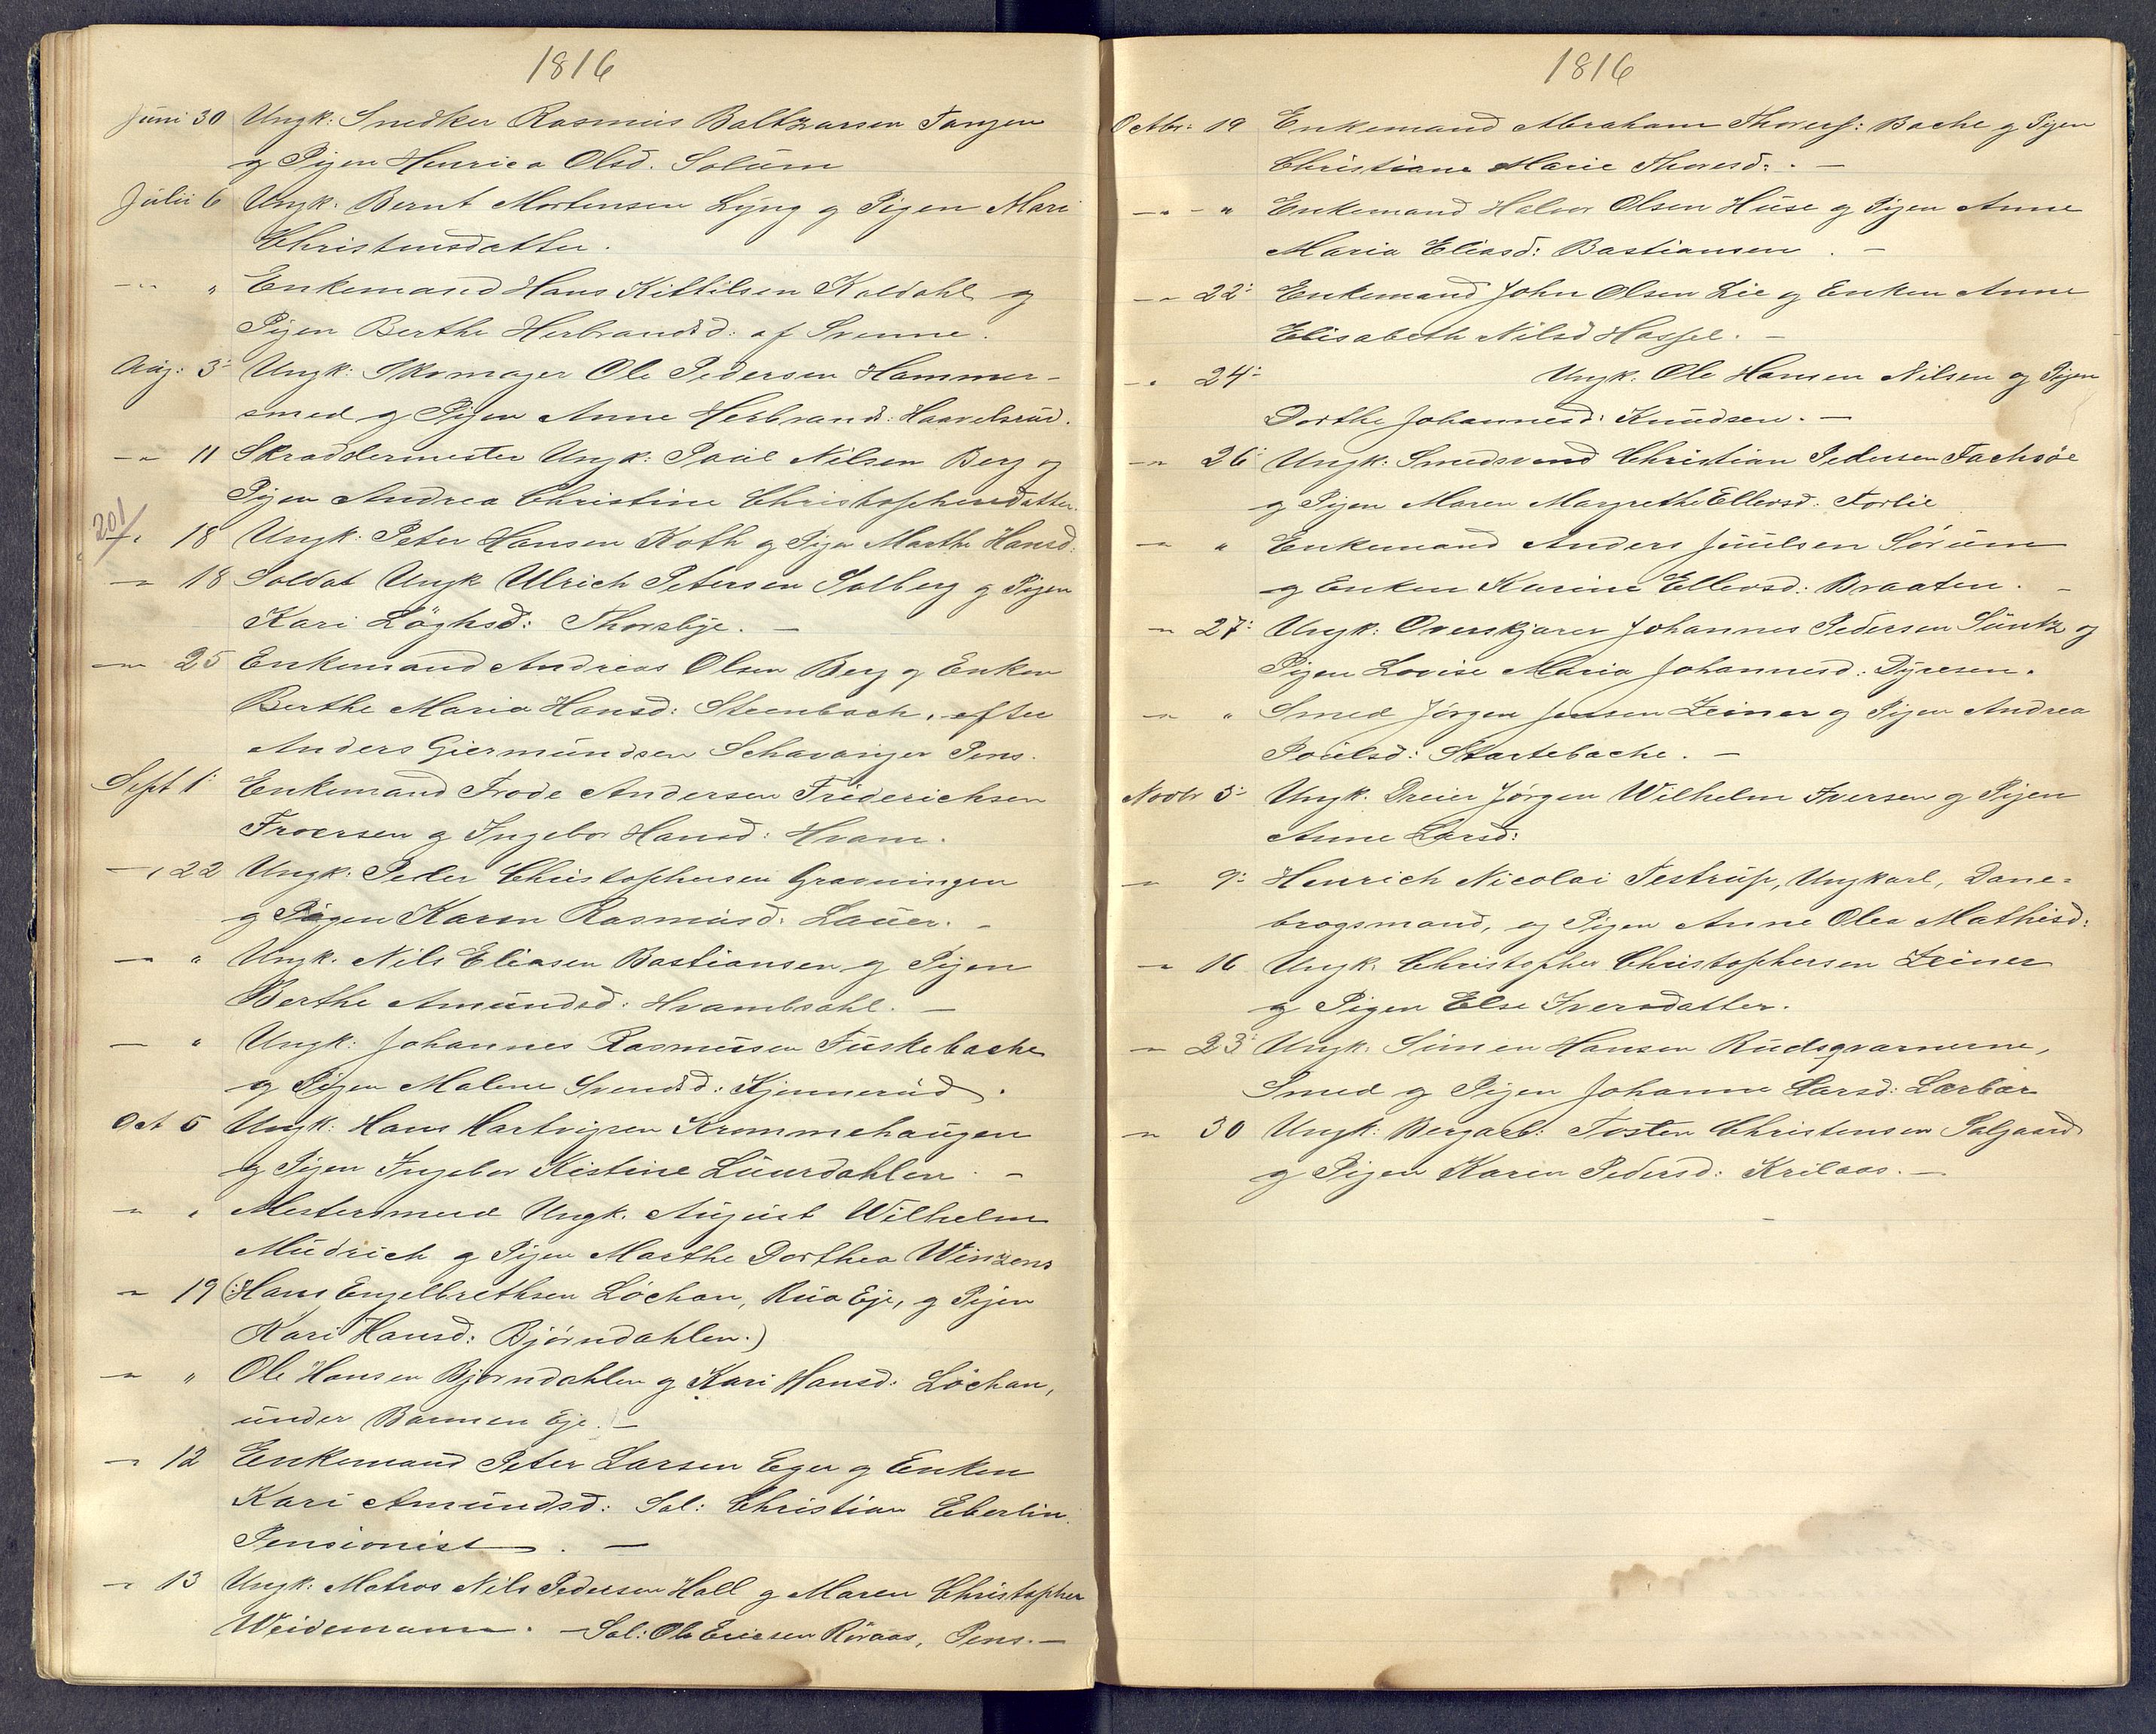 1816
Juni 30 Ungk: Snedker Rasmus Baltzarsen Tangen
og Pigen Henrica Olsd. Solum
Julii 6 Ungk: Bernt Mortensen Lyng og Pigen Mari
Christensdatter.
— " Enkemand Hans Kittilsen Koldahl og
Pigen Berthe Herbrandsd: af Svenne.
Aug: 3 Ungk: Skomager Ole Pedersen Hammer-
smed og Pigen Anne Herbrands: Haavelsrud.
— 11 Skræddermester Ungk: Paul Nilsen Berg og
Pigen Andrea Christine Christophersdatter.
201
18 Ungk: Peter Hansen Koth og Pigen Marthe Hansd:
— 18 Soldat Ungk Ulrich Petersen Solberg og Pigen
Kari Löghsd: Thorsbye. —
— 25 Enkemand Andreas Olsen Berg og Enken
Berthe Maria Hansd: Steenbach, efter
Anders Giermundsen Schavanger Pens.
Sept 1 Enkemand Frode Andersen Friderichsen
Froersen og Ingebor Hansd: Hvam.
— 22 Ungk. Peder Christophersen Gravningen
og Pigen Karen Rasmusd: Lauer. —
— " Ungk. Nils Eliasen Bastiansen og Pigen
Berthe Amundsd: Hvambsahl. —
— " Ungk: Johannes Rasmusen Fuskebache
og Pigen Malene Svendsd: Kjennerud.
Oct 5 Ungk: Hans Hartvigsen Krommehaugen
og Pigen Ingebor Kistine Luurdahlen. —
— " Mestersmed Ungk. August Wilhelm
Mudrich og Pigen Marthe Dorthea Winzens
— 19 (: Hans Engelbrethsen Löchan, Rua Eje, og Pigen
Kari Hansd: Bjørndahlen.)
— " Ole Hansen Bjørndahlen og Kari Hansd: Löchan,
under Bannen Eje. —
— 12 Enkemand Peter Larsen Eger og Enken
Kari Amundsd: Sal: Christian Eberlin
Pensionist. —
— 13 Ungk: Matros Nils Pedersen Hall og Maren Christopher
Weidemann. — Sal: Ole Ericsen Røraas, Pens. —
1816
Octbr: 19 Enkemand Abraham Thoresf: Bache og Pigen
Christiane Marie Thoresd: —
— " Enkemand Halvor Olsen Huse og Pigen Anne
Maria Eliasd: Bastiansen. —
— 22 Enkemand John Olsen Lie og Enken Anne
Elisabeth Nilsd Hassel. —
— 24 Ungk: Ole Hansen Nilsen og Pigen
Dorthe Johannesd: Knudsen. —
— 26 Ungk: Smedsvend Christian Pedersen Fachsøe
og Pigen Maren Margrethe Ellevsd: Torlie
— " Enkemand Anders Juulsen Sørum
og Enken Karine Ellevsd: Braaten. —
— 27 Ungk: Overskjærer Johannes Pedersen Suntz og
Pigen Lovise Maria Johannesd: Dyresen.
— " Smed Jörgen Jensen Zeiner og Pigen Andrea
Poulsd: Startebache. —
Novbr 3 Ungk. Dreier Jörgen Wilhelm Iversen og Pigen
Anne Larsd:
— 9 Henrich Nicolai Testrup, Ungkarl, Dane-
brogsmand, og Pigen Anne Olea Mathisd:
— 16 Ungk. Christopher Christophersen Zeiner
og Pigen Else Iversdatter.
— 23 Ungk. Simen Hansen Rudsqvarnerne,
Smed og Pigen Johanne Larsd: Lærbær
— 30 Ungk: Bergarb: Tosten Christensen Salgaard
og Pigen Karen Pedersd: Krilaas. —